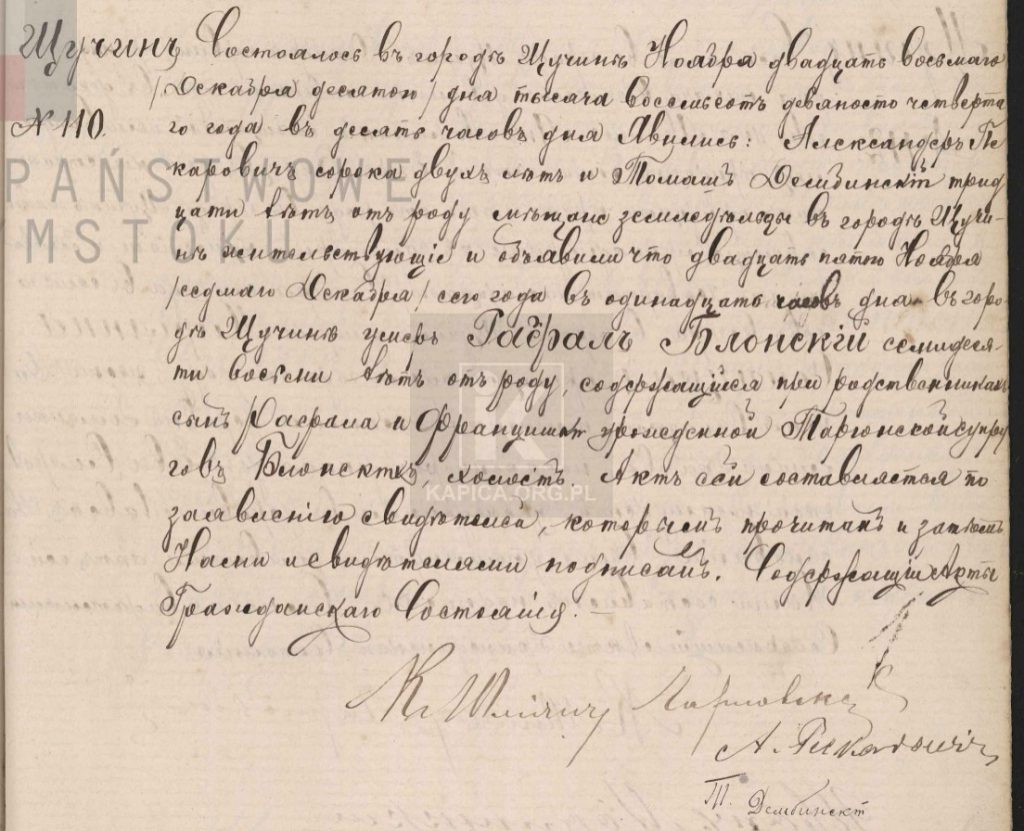 Щучинъ
№ 110.
Состоялось въ городѣ Щучинѣ Ноября двадцать восьмаго
/Декабря десятого/ дня тысяча восемьсотъ девяносто четверта
го года въ десять часовъ дня Явились: Александръ Пе
каровичъ сорока двухъ лѣтъ и Томашъ Дембинскій трид
цати лѣтъ отъ роду мѣщане земледѣльцы въ городѣ Щучи-
нѣ жительствующіе и объявили что двадцать пятого Ноября
/седмаго Декабря/ сего года въ одинадцать часовъ дня въ горо-
дѣ Щучинѣ умеръ Рафалъ Блонскій семидеся-
ти восьми лѣтъ отъ роду, содержащійся при родственникахъ
сынъ Рафала и Францишки урожденной супру
говъ Блонскихъ, холостъ. Актъ сей составляется по
заявленію свидѣтелей, которымъ прочитанъ и затѣмъ
Нами и свидѣтелями подписанъ. Содержащій Акты
Гражданскаго Состоянія. —
А. Пекарович
Т. Дембинскі
PAŃSTWOWE
MSTOKU
KAPICA.ORG.PL